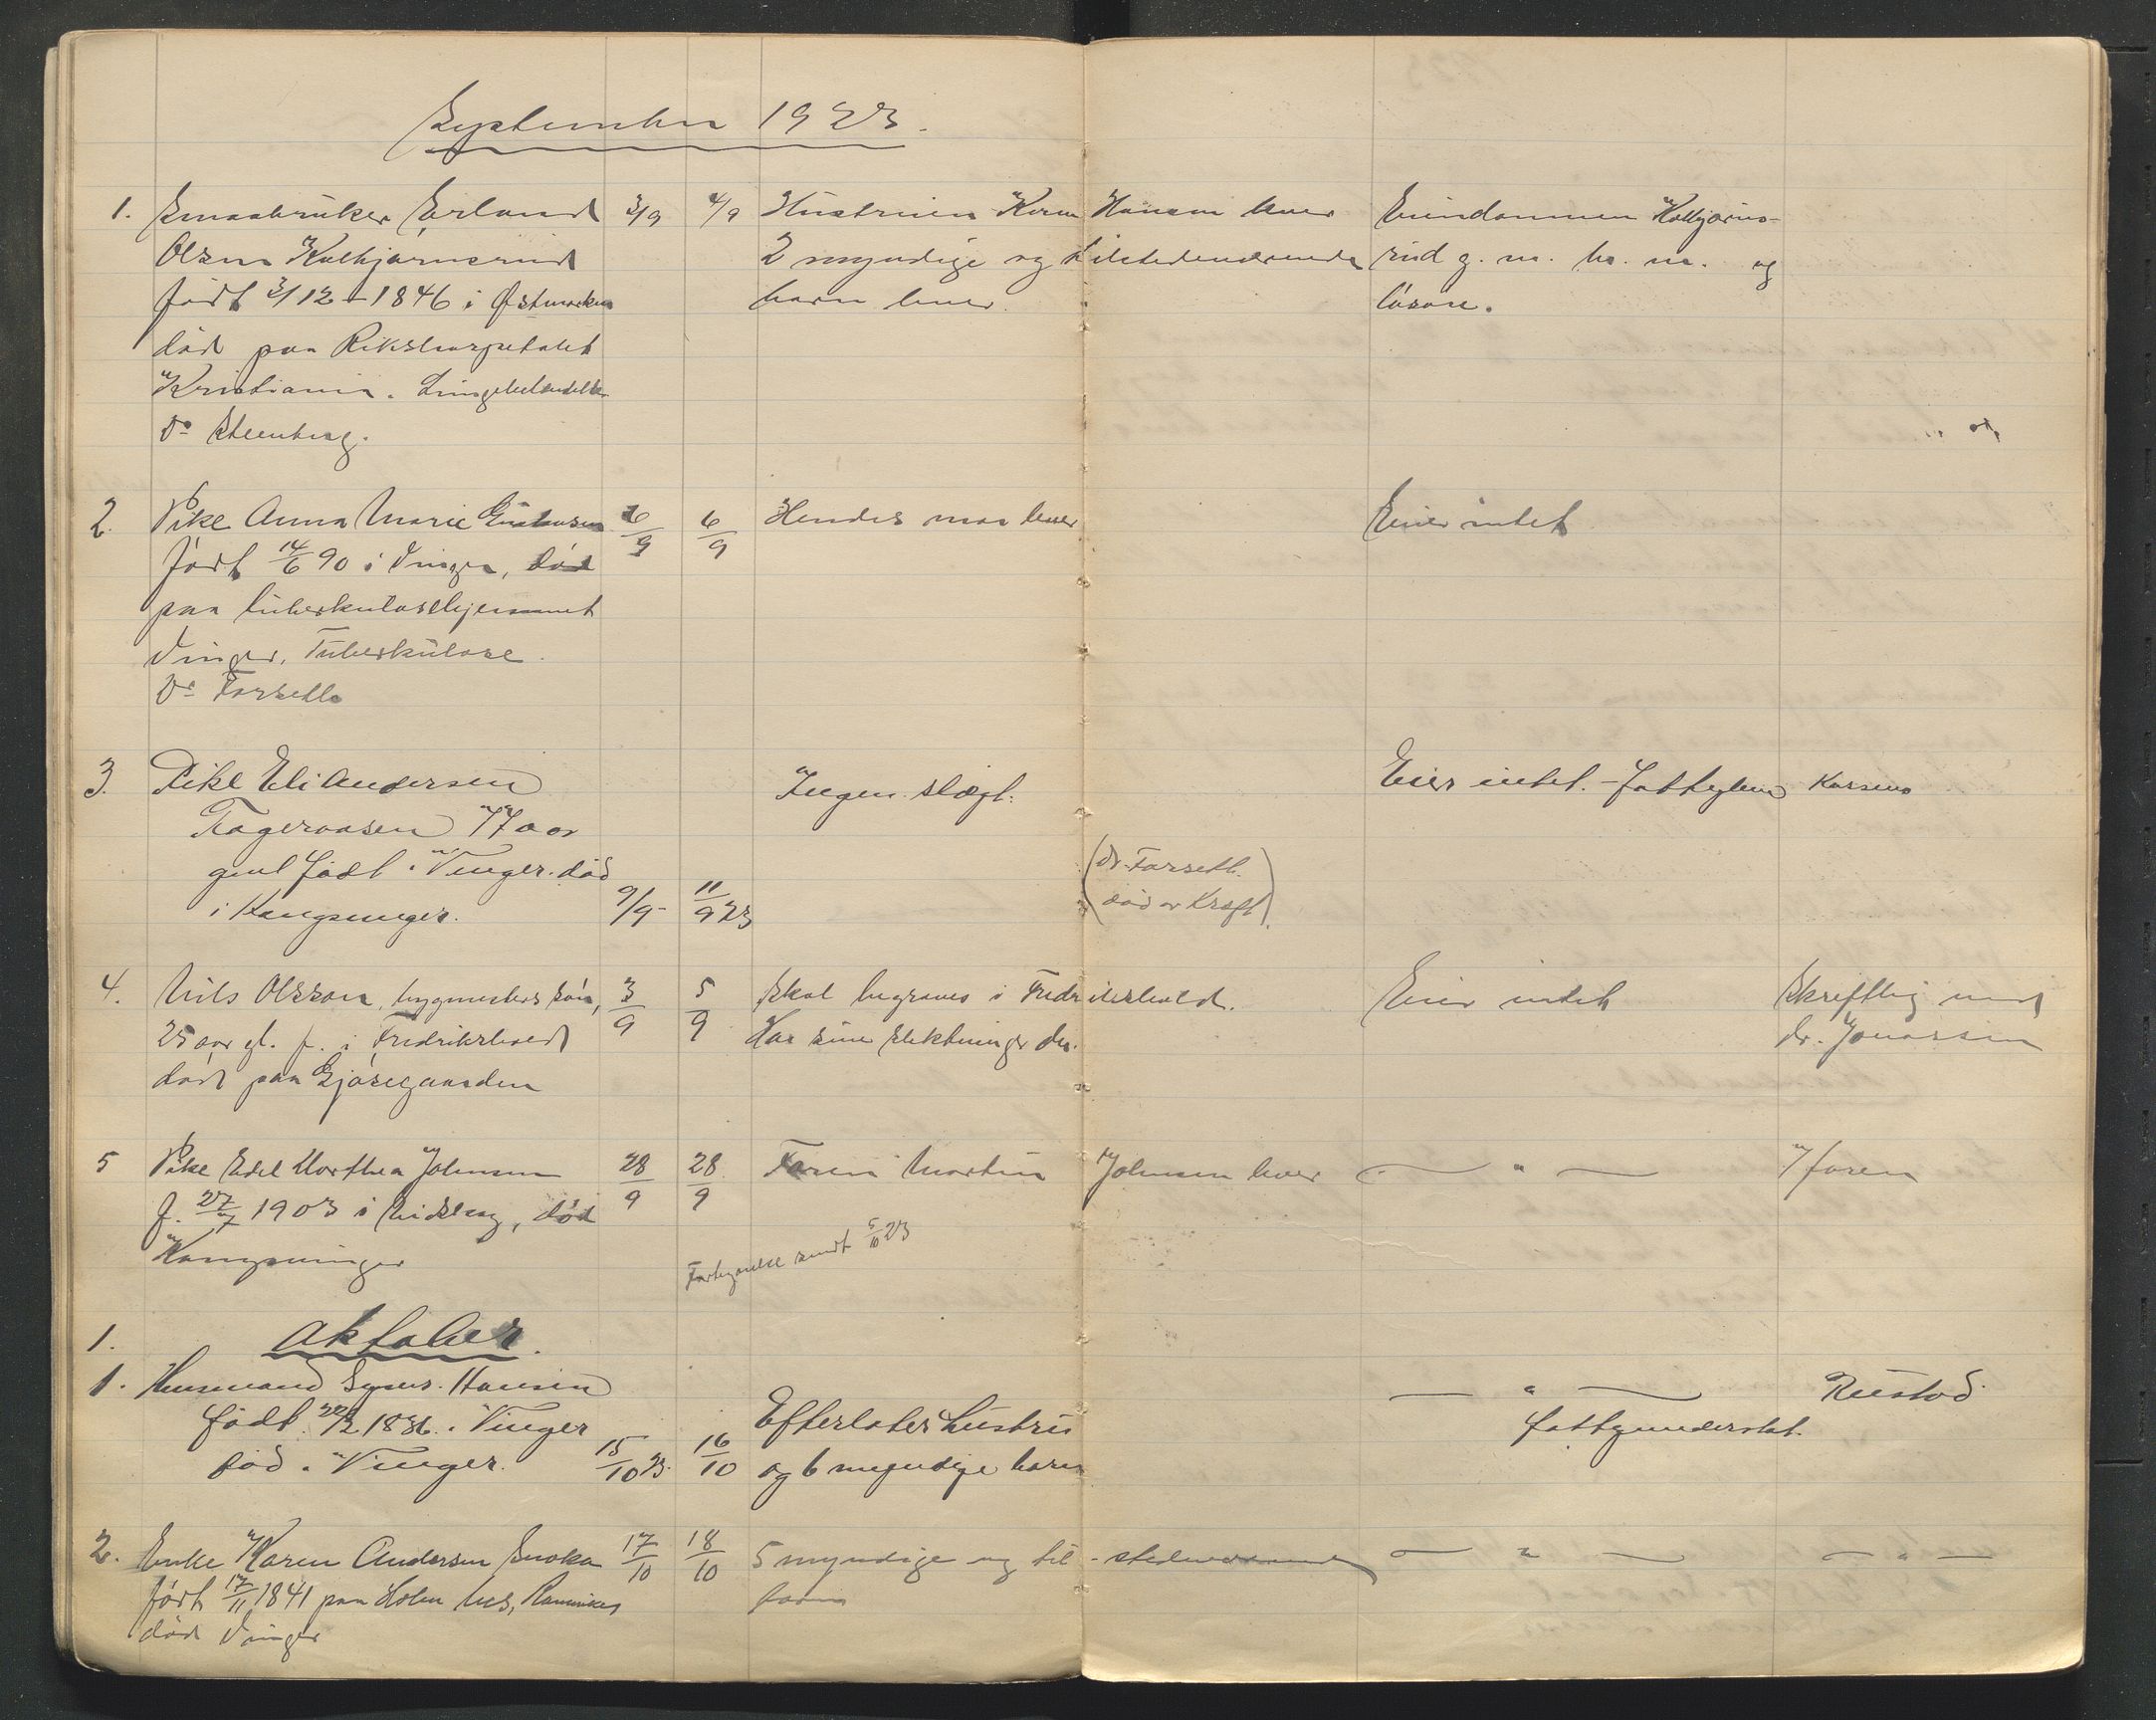 September 1923.
1. Smaabruker Erland 3/9 4/9 Hustruen Karen Hansen lever Eiendommen Kolbjørns-
Olsen Kolbjørnsrud 2 myndige og tilstedeværende rud g. nr. br. nr. og
født 3/12-1846 i Østmarken barn lever. løsøre.
død paa Rikshospitalet
Kristiania.
Dr Steenberg.
2. Pike Anna Marie Gustavsen 6/9 6/9 Hendes mor lever Eier intet
født 14/6 90 i Vinger, død
paa tuberkulosehjemmet
Vinger. Tuberkulose.
Dr Forseth
3. Pike Eli Andersen Ingen slægt. Eier intet. - fattiglem
Fageraasen 77 aar
gml født i Vinger. død (dr. Forseth.
i Kongsvinger. 9/9- 11/9 23 død av kræft)
4. Nils Olsson, bygmesters søn, 3/9 5/9 Skal begraves i Fredrikshald. Eier intet Skriftlig med
25 aar gl. f. i Fredrikshald Har sine slektninger der. dr. Jonassen
død paa Gjøsegaarden
5 Pike Edel Dorthea Johnsen 28/9 28/9 Faren Martin Johnsen lever — " — Faren
f. 27/7 1903 i Lidskog, død
Kongsvinger Fortegnelse sendt 5/10 23
1. Oktober.
1. Husmand Hansen — " — Rustad
født 1836 i Vinger Efterlater hustru fattigunderstøt.
død i Vinger. 15/10 23. 16/10 og 6 myndige barn
2. Enke Karen Andersen Snoka 17/10 18/10 5 myndige og til-stedeværende — " — — " —
født 17/11 1841 paa Holm barn
død Vinger